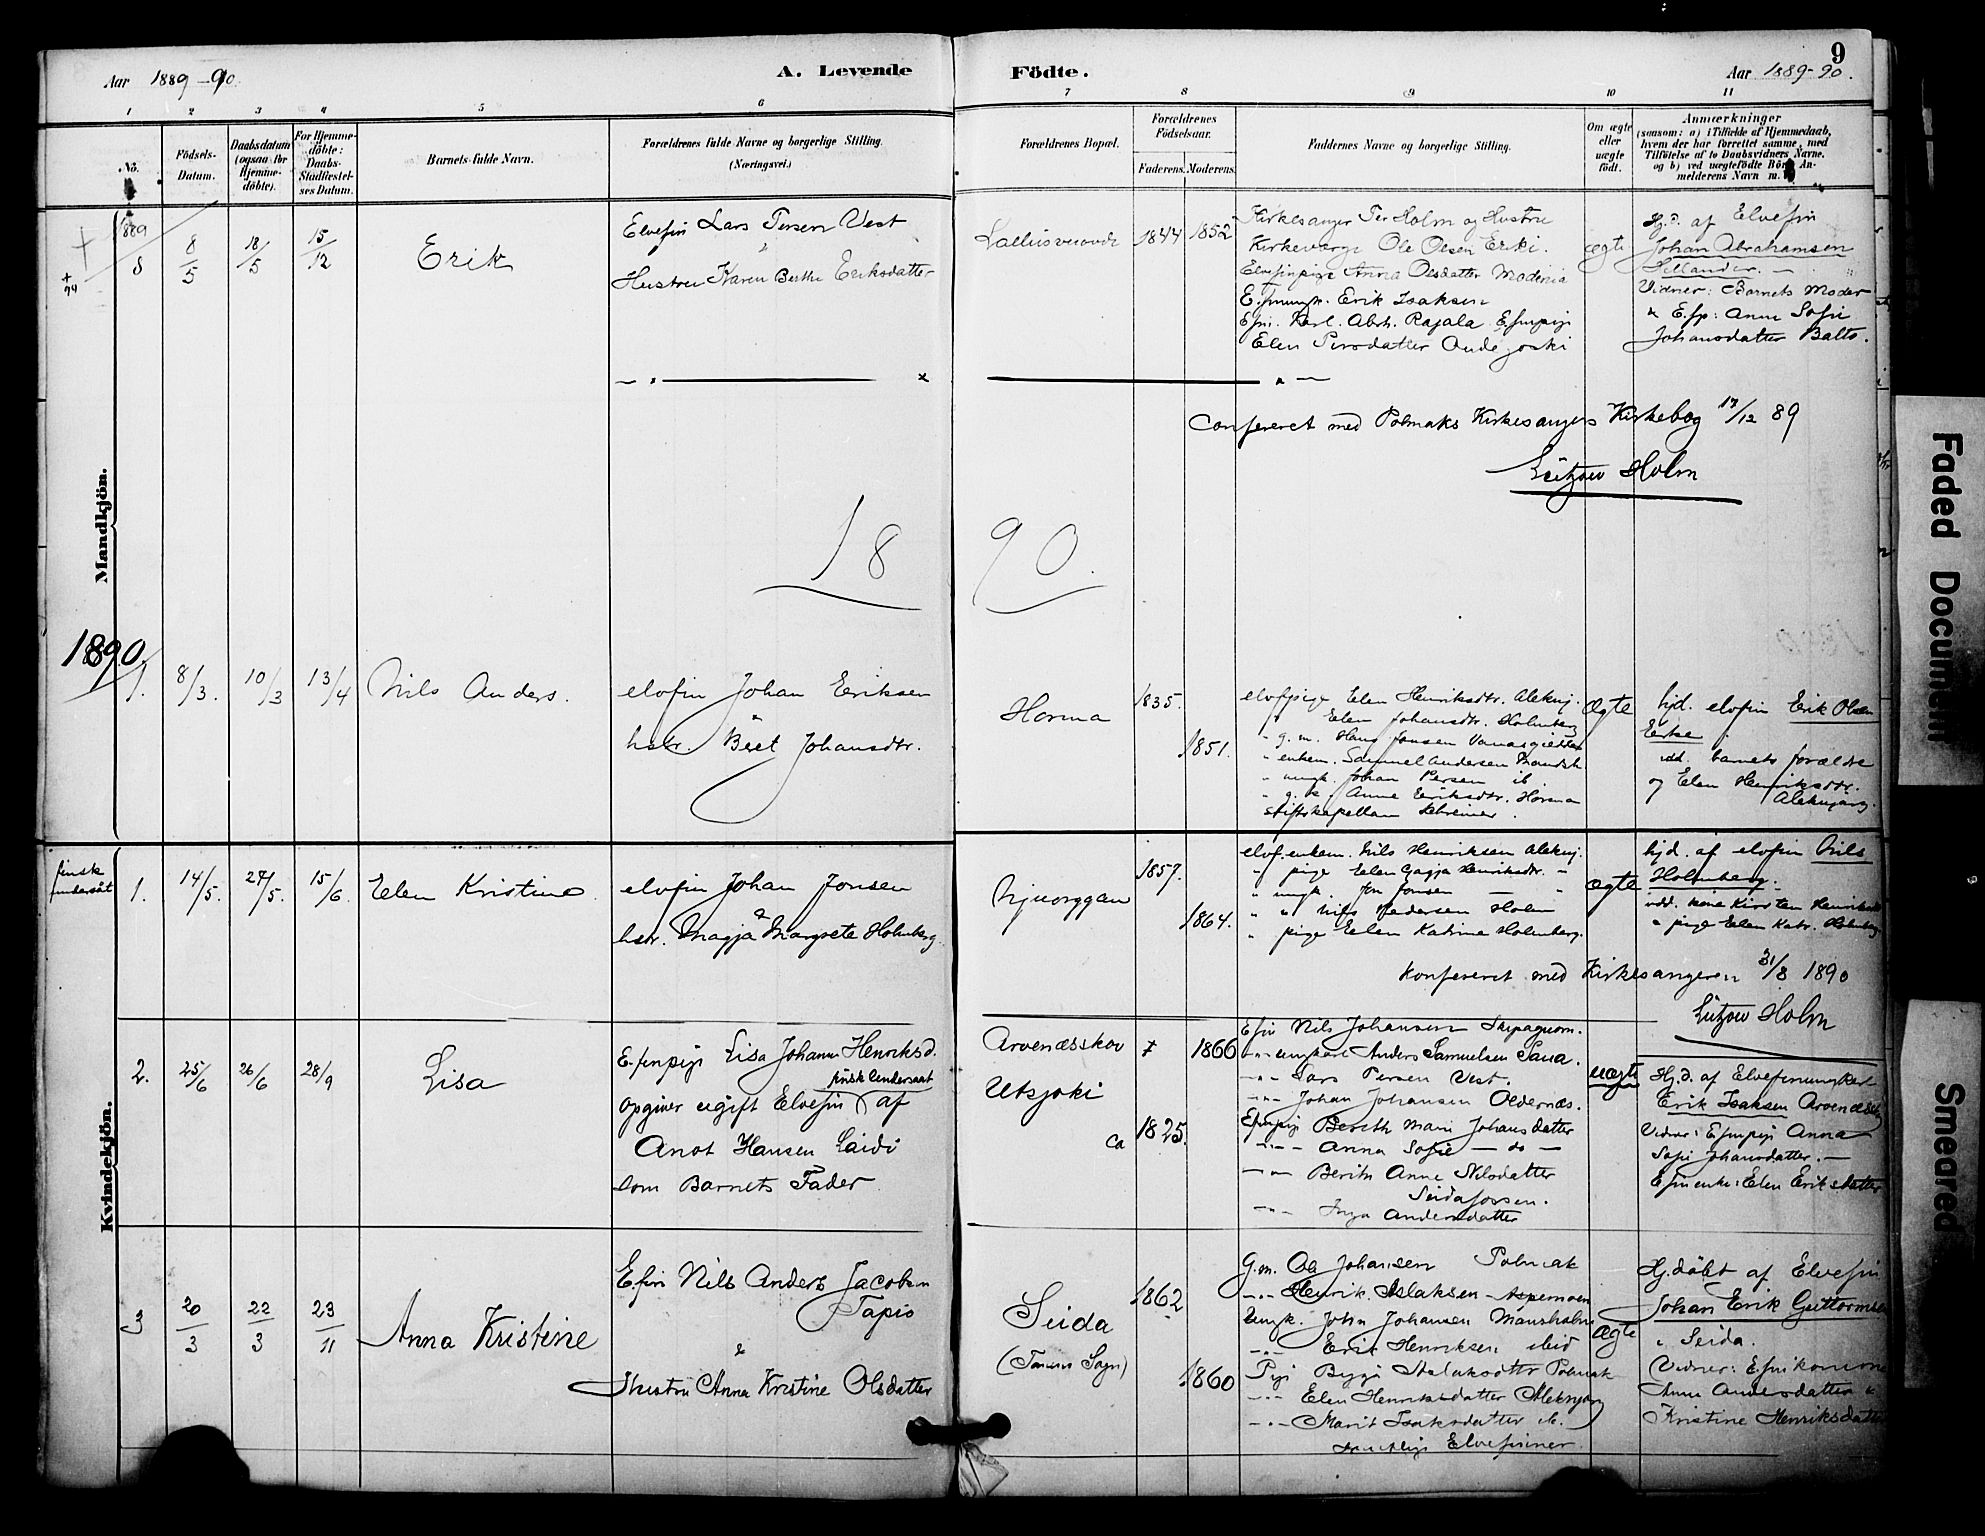 9
Aar 1889-90.
A. Levende
Födte.
Aar 1889-90.
1 2 3 4 5 6 7 8 9 10 11
No.
Födsels-Datum.
Daabsdatum (ogsaa for Hjemme-döbte).
For Hjemme-döbte: Daabs-Stadfæstel-ses Datum.
Barnets fulde Navn.
Forældrenes fulde Navne og borgerlige Stilling.
(Næringsvei.)
Forældrenes Bopæl.
Forældrenes Födselsaar.
Faderens. Moderens.
Faddernes Navne og borgerlige Stilling.
Om ægte eller uægte födt.
Anmærkninger
(saasom: a) i Tilfælde af Hjemmedaab,
hvem der har forrettet samme, med
Tilföielse af to Daabsvidners Navne,
og b) ved uægtefödte Börn An-
melderens Navn m. m.)
Mandkjön.
1889
8 8/5 18/5 15/12 Erik
Elvefin Lars Persen Vest
&
Hustru Karen Berthe Eriksdatter
1844 1852
Kirkesanger Per Holm og Hustru
Kirkeværge Ole Olsen Erki.
Elvefinpige Anna Olsdatter Modenia
E.finungk. Erik Isaksen
Efin. Karl. Abrh. Rajala Efinpige
Elen Persdatter
ægte
Hj.d. af Elvefin
Johan Abrahamsen
Vidner: Barnets Moder
& E.fp: Anne Sofie
Johansdatter Balto.
Confereret med Polmaks Kirkesangers Kirkebog 17/12 89
Lützow Holm
18 90.
1890.
1. 8/3. 10/3 13/4 Nils Anders.
elvfin Johan Eriksen
hstr. Beret Johansdtr.
Horma
1835.
1851.
elvfpige Elen Henriksdtr. Aleknj.
" Elen Johansdtr. Holmberg
" g.m. Hans Jonsen
" enkem. Samuel Andersen
" ungk. Johan Persen ib.
" g.k. Anne Eriksdtr. Horma
stiftskapellan Schreiner.
Ægte
hjd. elvfin Erik Olsen
Erkke.
vdd. barnets forældre
og Elen Henriksdtr.
Aleknjarg.
Kvindekjön.
finsk undersåt
1. 14/5. 27/5. 15/6. Elen Kristine
elvfin Johan Jonsen
&
hstr. Magja Margrete Holmberg.
Njuorggan
1857.
1864.
elvf.enkem. Nils Henriksen Aleknj.
" pige Elen Gagja Henriksdtr. "
" ungk. Jon Jonsen — "
" " Nils Pedersen Holm
" pige Elen Katrine Holmberg.
ægte
hjd. af elvfin Nils
Holmberg.
vdd. kone Kirsten Henriksdtr
" pige Elen Katr. Holmberg.
Konfereret med Kirkesangeren 31/8 1890
Lützow Holm
2. 25/6 26/6 28/9 Lisa
E.finpige Lisa Johanne Henriksd.
finsk Undersaat
opgiver ugift Elvefin af
Anot Hansen Laidi
som Barnets Fader
Arvenæsskov
Utsjoki
1866
ca 1825.
Efin Nils Johansen
-"- ungkarl Anders Samuelsen
-"- Lars Persen Vest.
-"- Johan Johansen Oldernæs.
Efinpige Bereth Marie Johansdatter
-"- Anna Sofie — do —
-"- Berith Anne Nilsdatter
Seidafossen.
-"- Inga Andersdatter
uægte
Hj.d. af Elvefinungkarl
Erik Isaksen Arvenæs
Vidner: Efinpige Anna
Sofie Johansdatter. —
E.finenke: Elen Eriksdatter
3 20/3 22/3 23/11 Anna Kristine
E.fin Nils Anders Jacobsen
Tapio
&
Hustru Anna Kristine Olsdatter
Seida
(Tanens Sogn)
1862
1860
G.m. Ole Johansen Polmak
-"- Henrik Aslaksen
Ungk. John Johansen Mansholm
-"- Erik Henriksen ibid
Pige Biggi Aslaksdtr Polmak
-"- Elen Henriksdatter Aleknjarg
-"- Marit Isaksdatter ib.
samtlige Elvefinner.
ægte
Hj.döbt af Elvefin
Johan Erik Guttormsen
" Seida.
Vidner: E.finkonerne
Anne Andersdatter &
Kristine Henriksdatter
Faded Document
Smeared